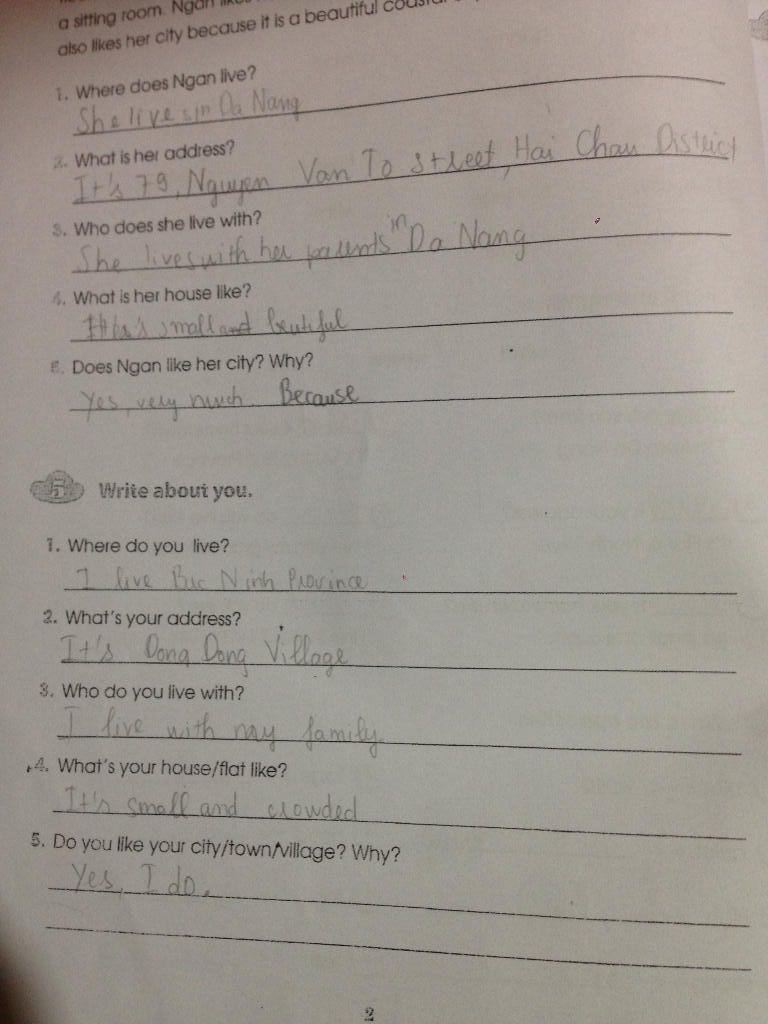 a sitting room. Ngan
also likes her city because it is a beautiful
1. Where does Ngan live?
She lives in Da Nang
2. What is her address?
It's 79, Nguyen Van To street, Hai Chau District
3. Who does she live with?
She lives with her parents in Da Nang
4. What is her house like?
It's small and beutiful
5. Does Ngan like her city? Why?
Yes, very much. Because
5 Write about you.
1. Where do you live?
I live Bac Ninh Province
2. What's your address?
It's Dong Dong Village
3. Who do you live with?
I live with my family
4. What's your house/flat like?
It's small and crowded
5. Do you like your city/town/village? Why?
Yes, I do.
2